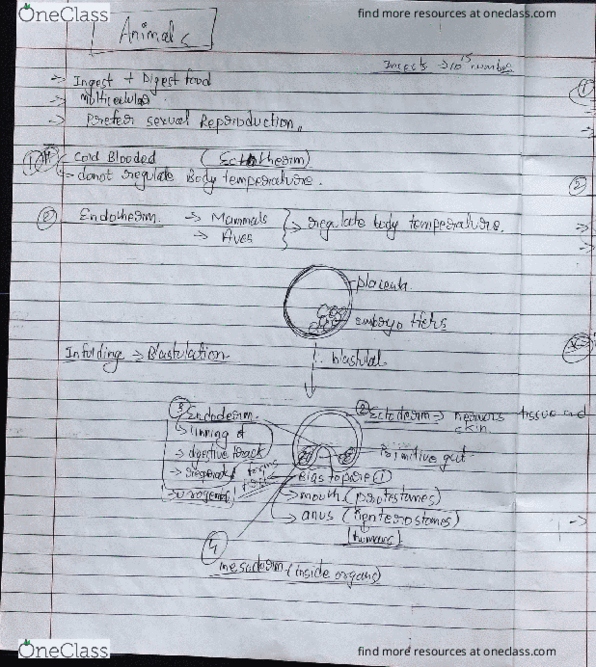 OneClass
find more resources at oneclass.com
Animals
Insects → 10^15 number
→ Ingest + Digest food
→ Multicellular
→ Prefer sexual Reproduction.
① Cold Blooded (Ectotherm)
→ donot regulate Body temperature.
② Endotherm. → Mammals } → regulate body temperature.
→ Aves
placenta
embryo
Infolding → Blastulation
③ Endoderm.
② Ectoderm → nervous tissue and
skin
→ lining of
→ digestive track
Primitive gut
Blastopore ①
→ mouth (protestomes)
→ anus
(humans)
④
mesoderm (inside organs)
OneClass
find more resources at oneclass.com